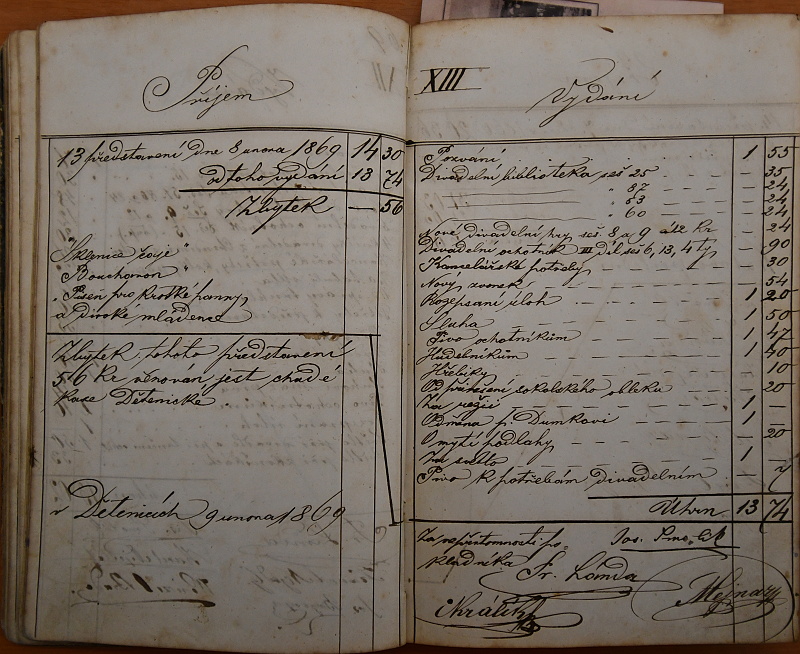 Příjem
13 představení dne 8 února 1869 14 30
od toho vydání 13 74
Zbytek — 56
Sklenice čaje"
"Bouchoron"
"Píseň pro krotké panny
a divoké mládence
Zbytek tohoto představení
56 kr věnován jest chudé
kase Dětenické
v Dětenicích 9 února 1869
XIII
Vydání
Pozvání 1 55
Divadelní biblioteka seš 25 — 35
" 87 — 24
" 83 — 24
" 60 — 24
Nové divadelní hry seš. 8 a 9 kr — 24
Divadelní ochotník III díl seš 6, 13, 4 — 90
Kancelářské potřeby — 30
Nový zvonek — 54
Rozepsaní úloh 1 20
Sluha 1 50
Pivo ochotníkům 1 47
Hudebníkům 1 40
Hřebíky — 10
Od přinešení sokolského obleku — 20
Za režii 1 —
Odměna p. Dumkovi 1 —
O mytí podlahy — 20
Za světlo 1 —
Pivo k potřebám divadelním — 7
Úhrn 13 74
Za nepřítomnosti po-
kladníka
Jos.
Fr. Lómda
Králík
Mejnarz